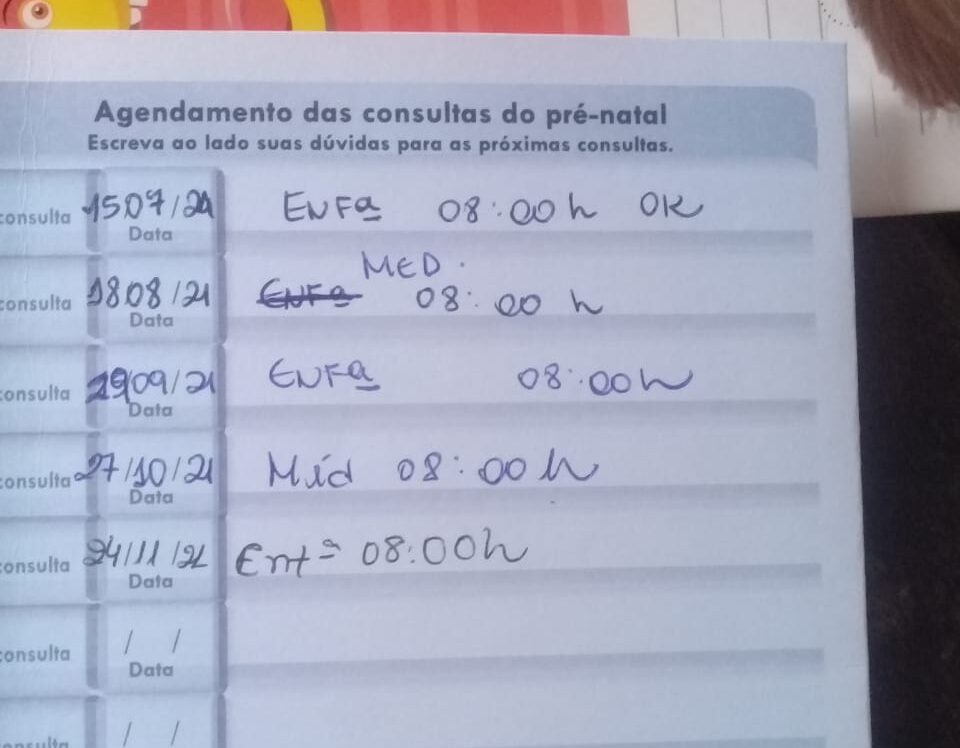 Agendamento das consultas do pré-natal
Escreva ao lado suas dúvidas para as próximas consultas.
consulta 1507/21 ENFª 08:00h OK
Data
MED.
consulta 1808/21 ENFª 08:00 h
Data
consulta 29/09/21 ENFª 08:00h
Data
consulta 27/10/21 Méd 08:00h
Data
consulta 24/11/21 Enfª 08:00h
Data
consulta / /
Data
consulta / /